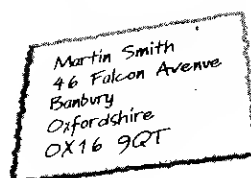 Martin Smith
46 Falcon Avenue
Banbury
Oxfordshire
OX16 9QT